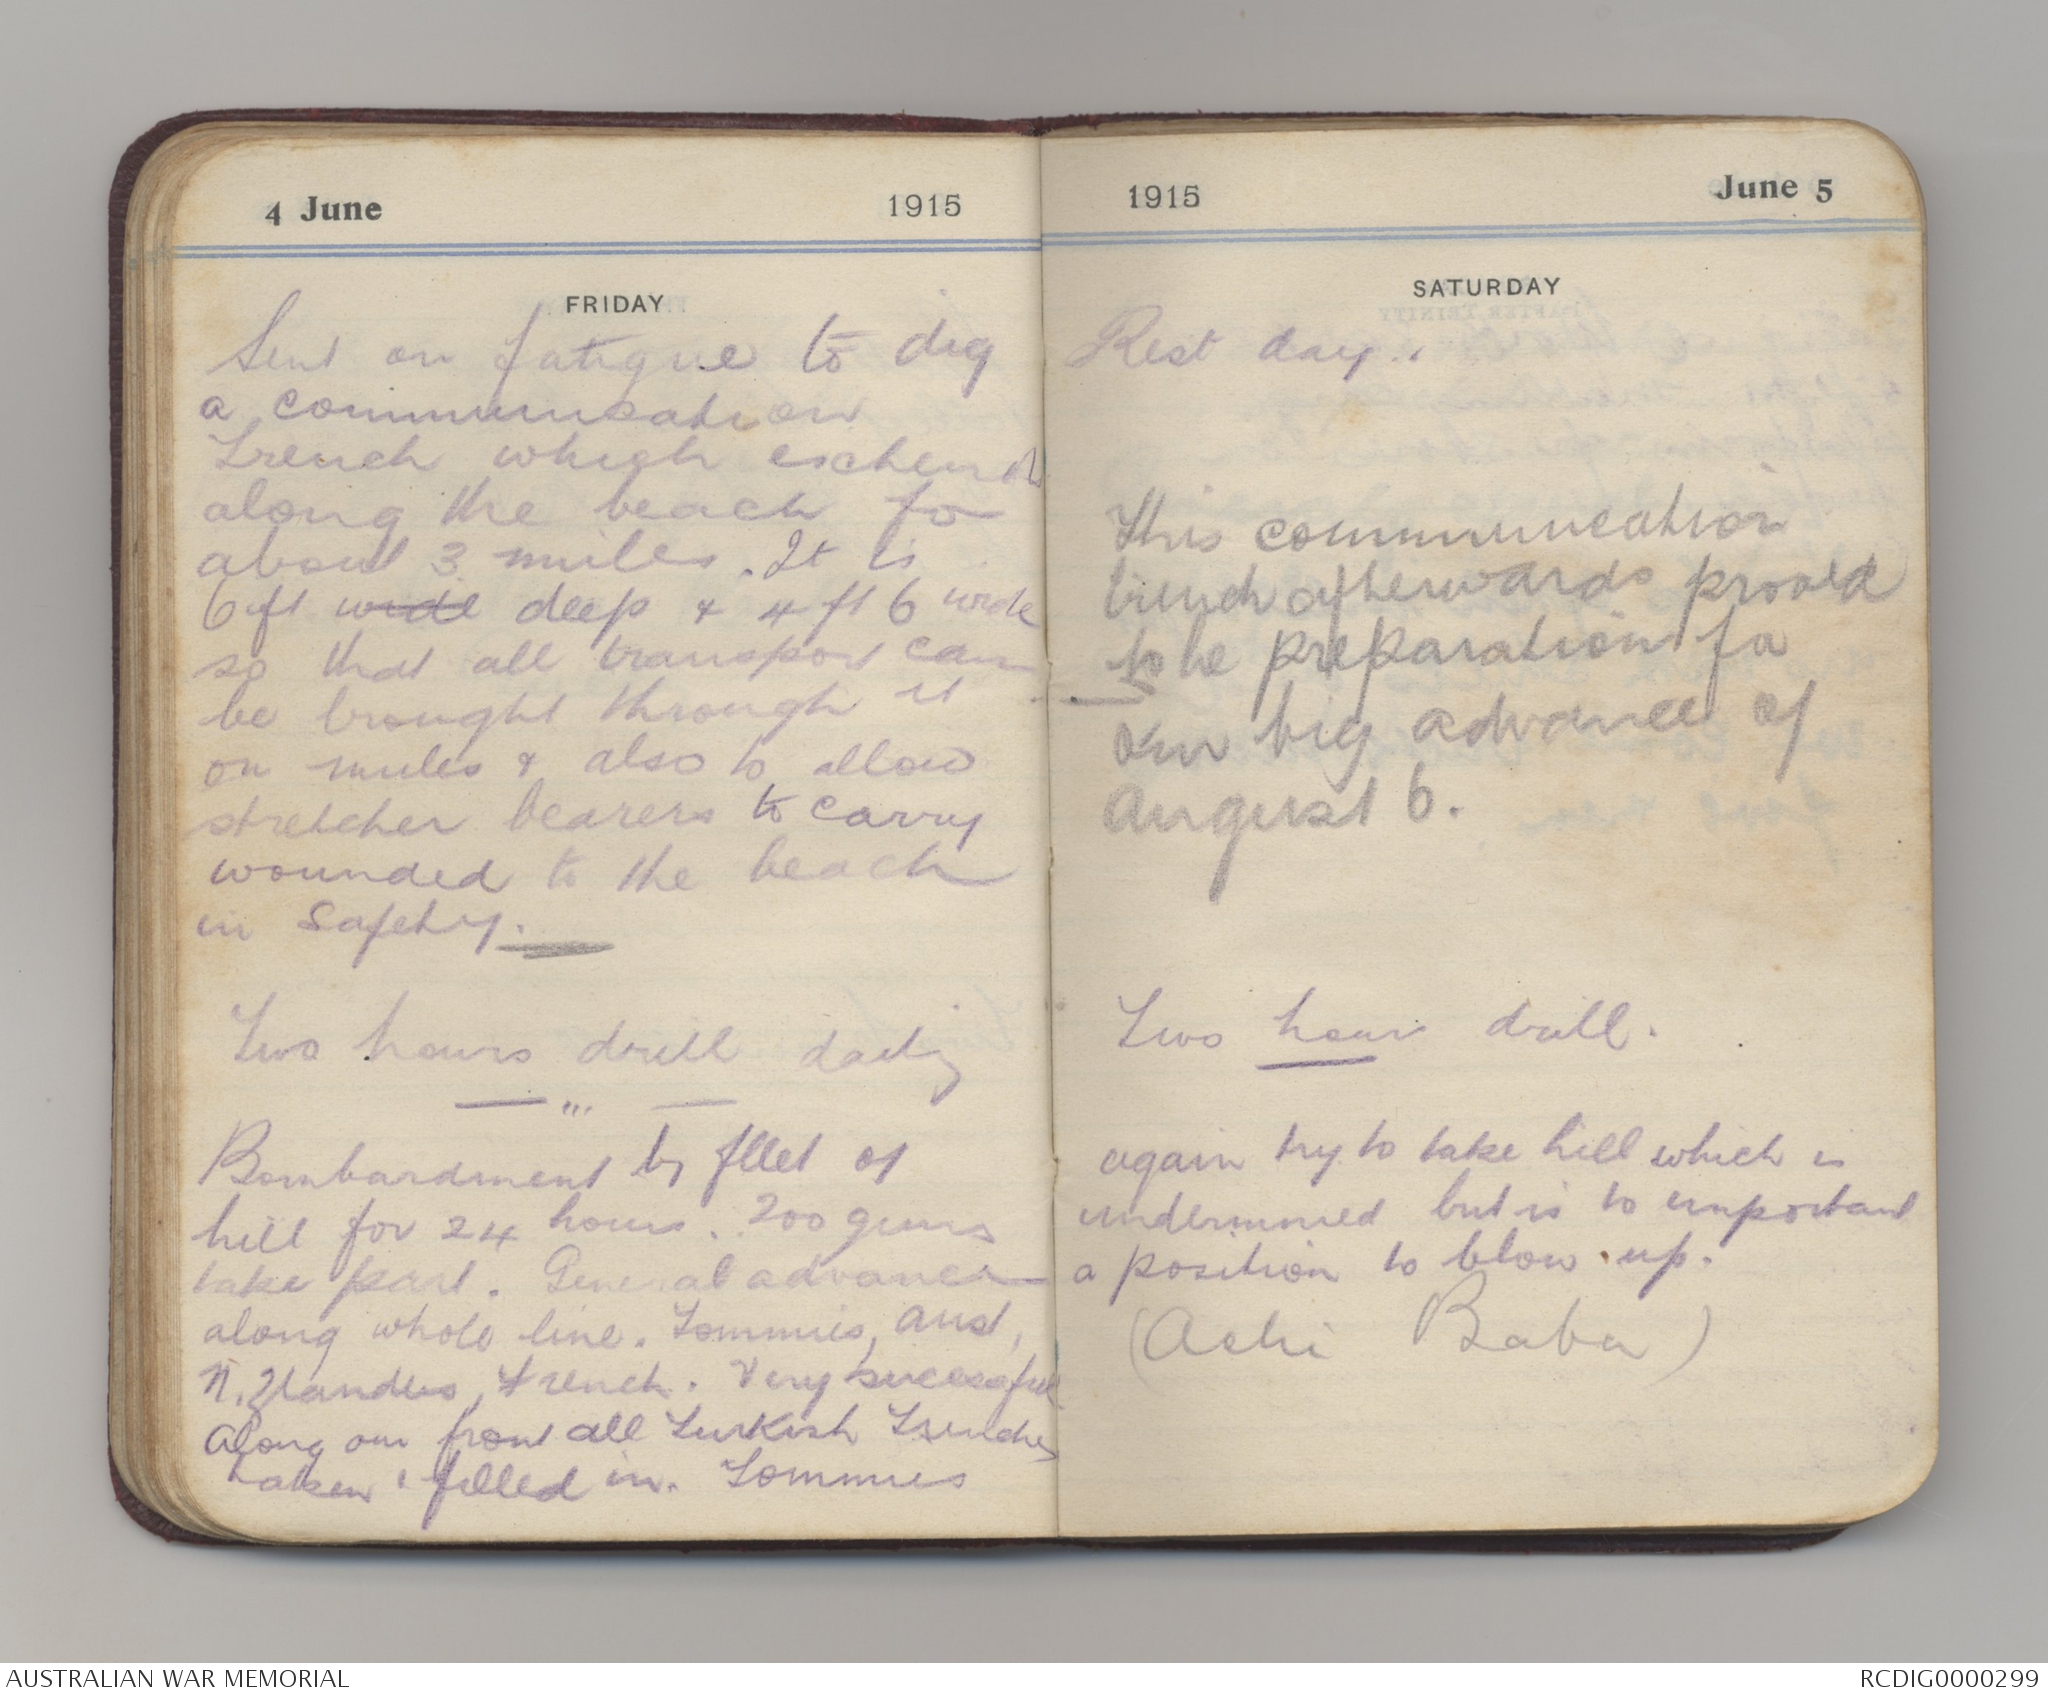 4 June 1915
FRIDAY
Sent on fatigue to dig
a communication
Trench which
along the beach for
about 3 miles. It is
6 ft wide deep & 4 ft 6 wide
so that all transport can
be brought through it
on mules & also to allow
stretcher bearers to carry
wounded to the beach
in safety.
Two hours drill daily
Bombardment by fleet of
hill for 24 hours. 200 guns
take part. General advance
along whole line. Tommies, Aust,
N. Zlanders, French. Very successful
Along our front all Turkish Trenches
taken & filled in. Tommies
1915 June 5
SATURDAY
Rest day.
This communication
trench afterwards proved
to be preparation for
our big advance of
August 6.
Two hour drill.
again try to take hill which is
undermined but is to important
a position to blow up.
(Achi Baba)
AUSTRALIAN WAR MEMORIAL
RCDIG0000299